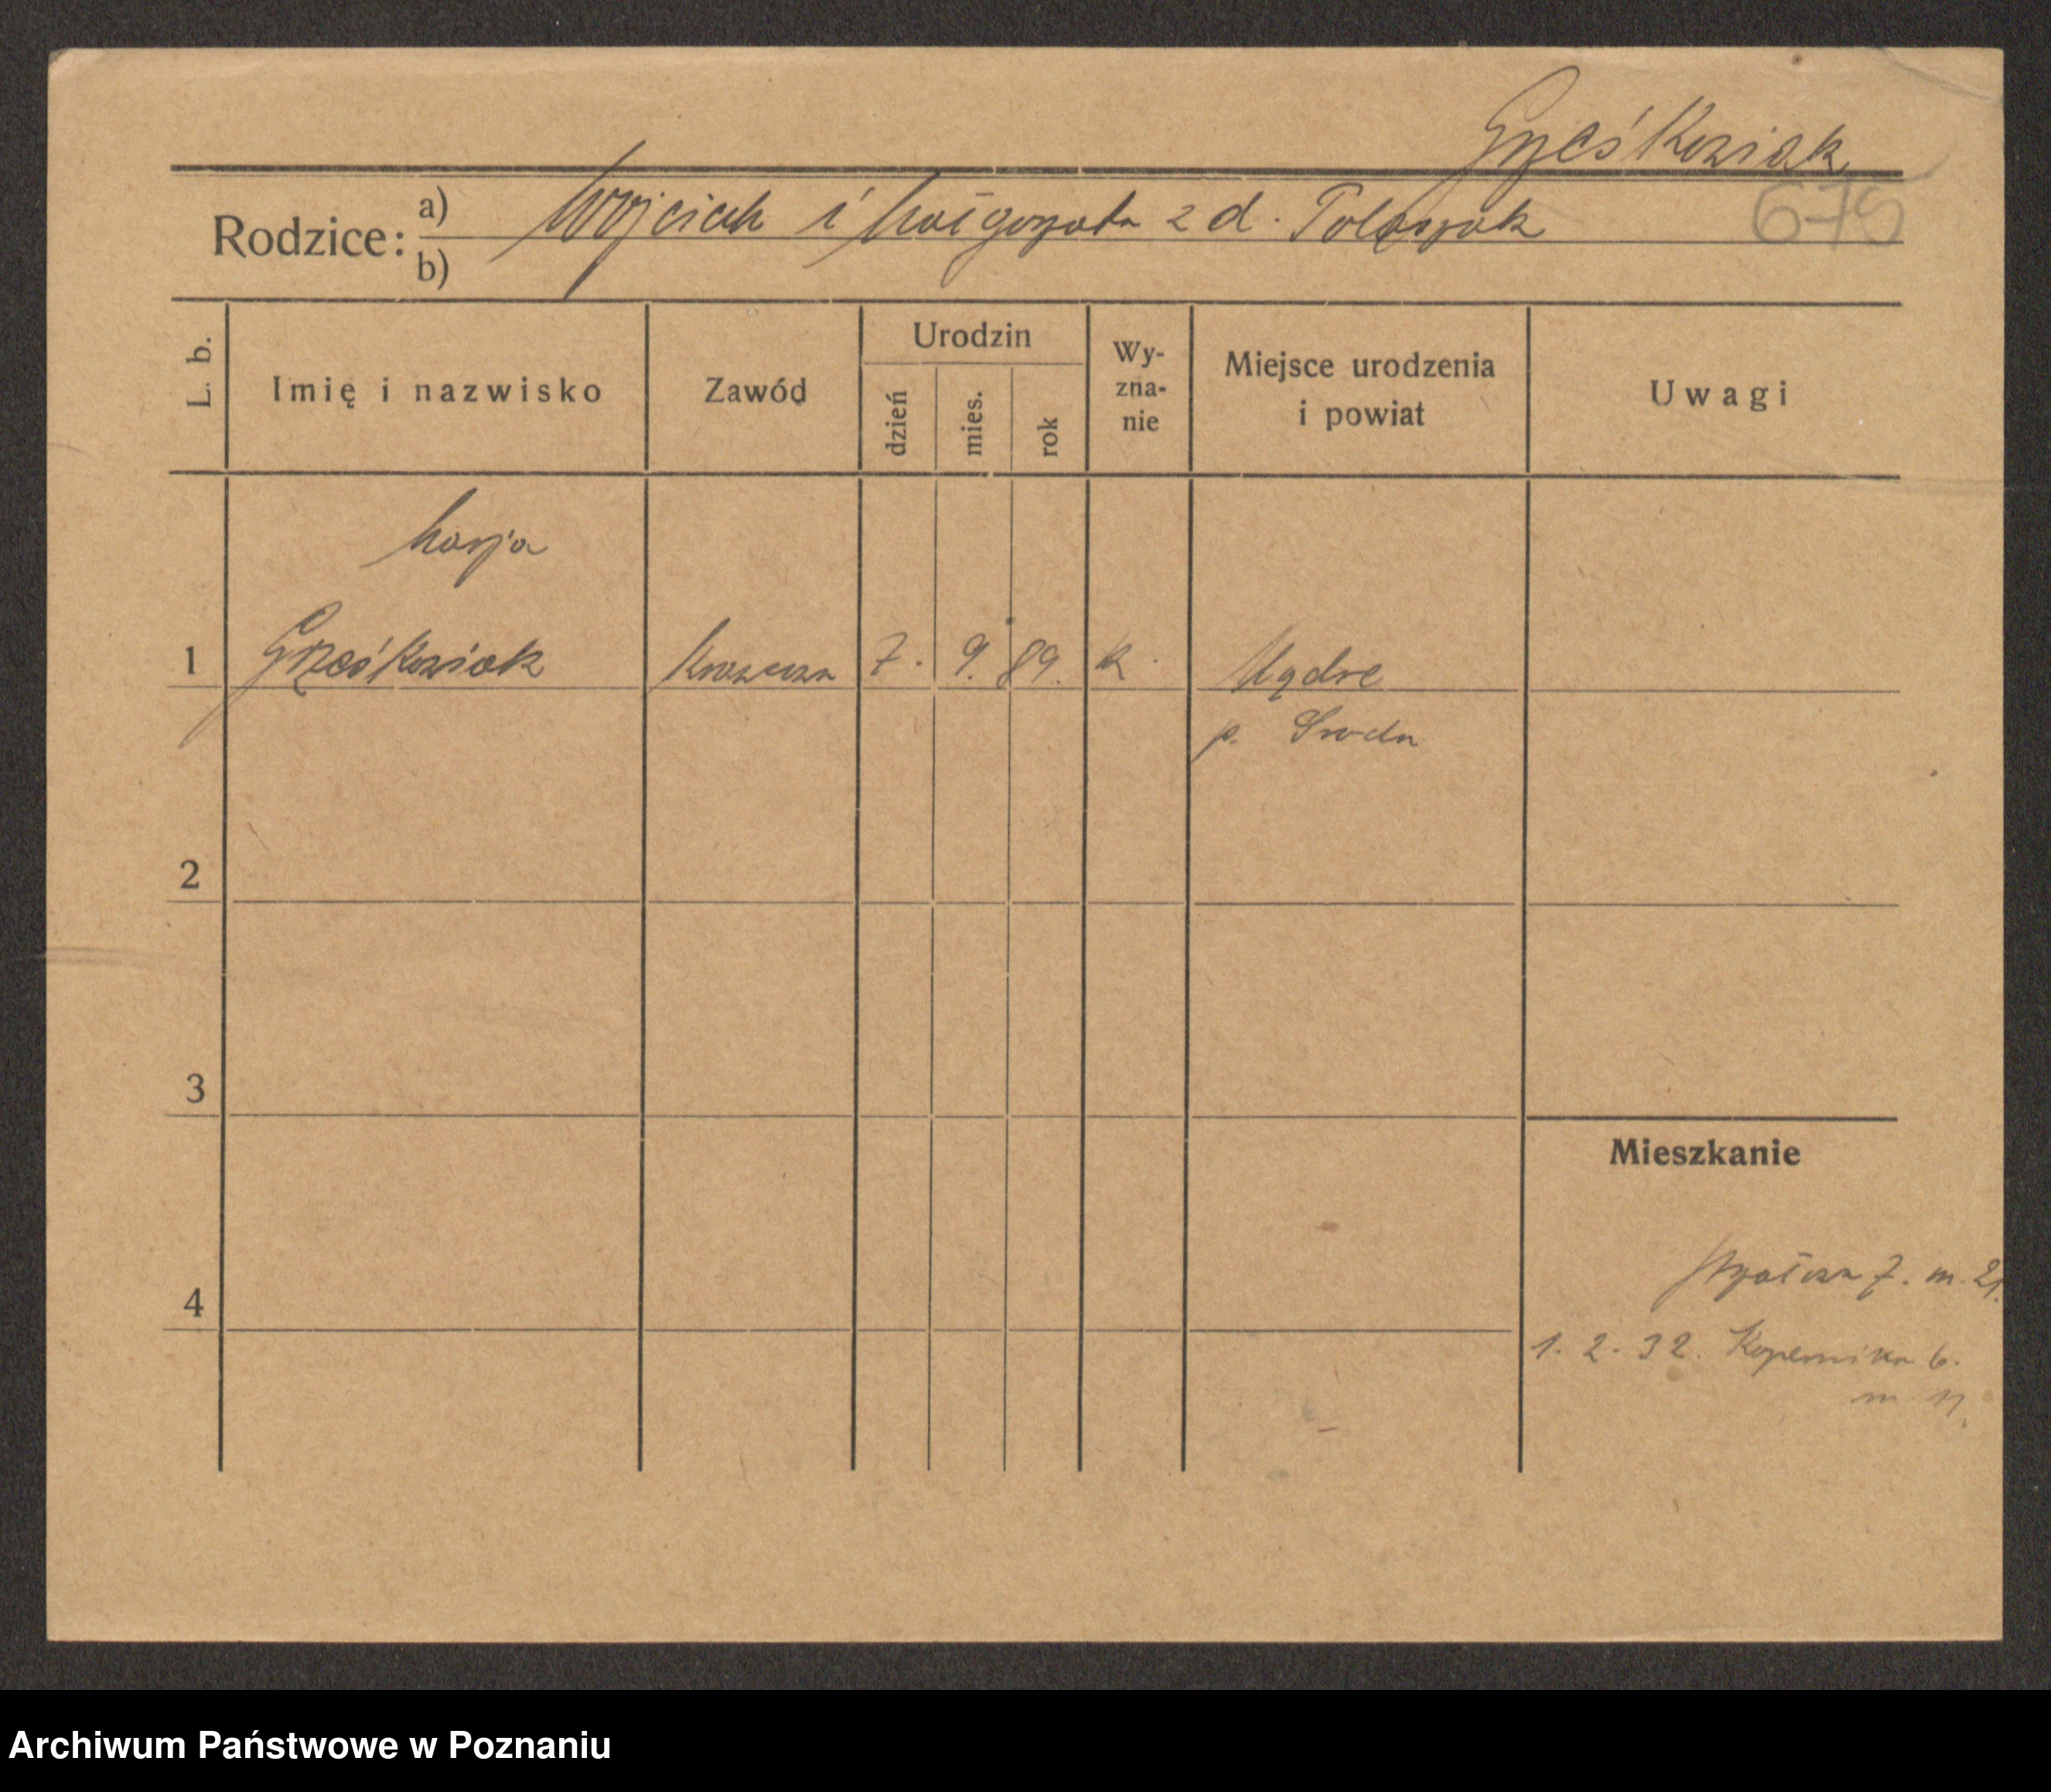 Grześkowiak
675
Rodzice: a) Wojciech i Małgorzata z d.
b)
L. b. Imię i nazwisko Zawód Urodzin dzień mies. rok Wyzna-nie Miejsce urodzenia i powiat Uwagi
Marja
1 Grześkowiak Krawcowa 7. 9. 89. k. Mądre
p. Środa
2
3
Mieszkanie
7. m. 21.
4
1. 2. 32. Kopernika 6.
m. 11.
Archiwum Państwowe w Poznaniu